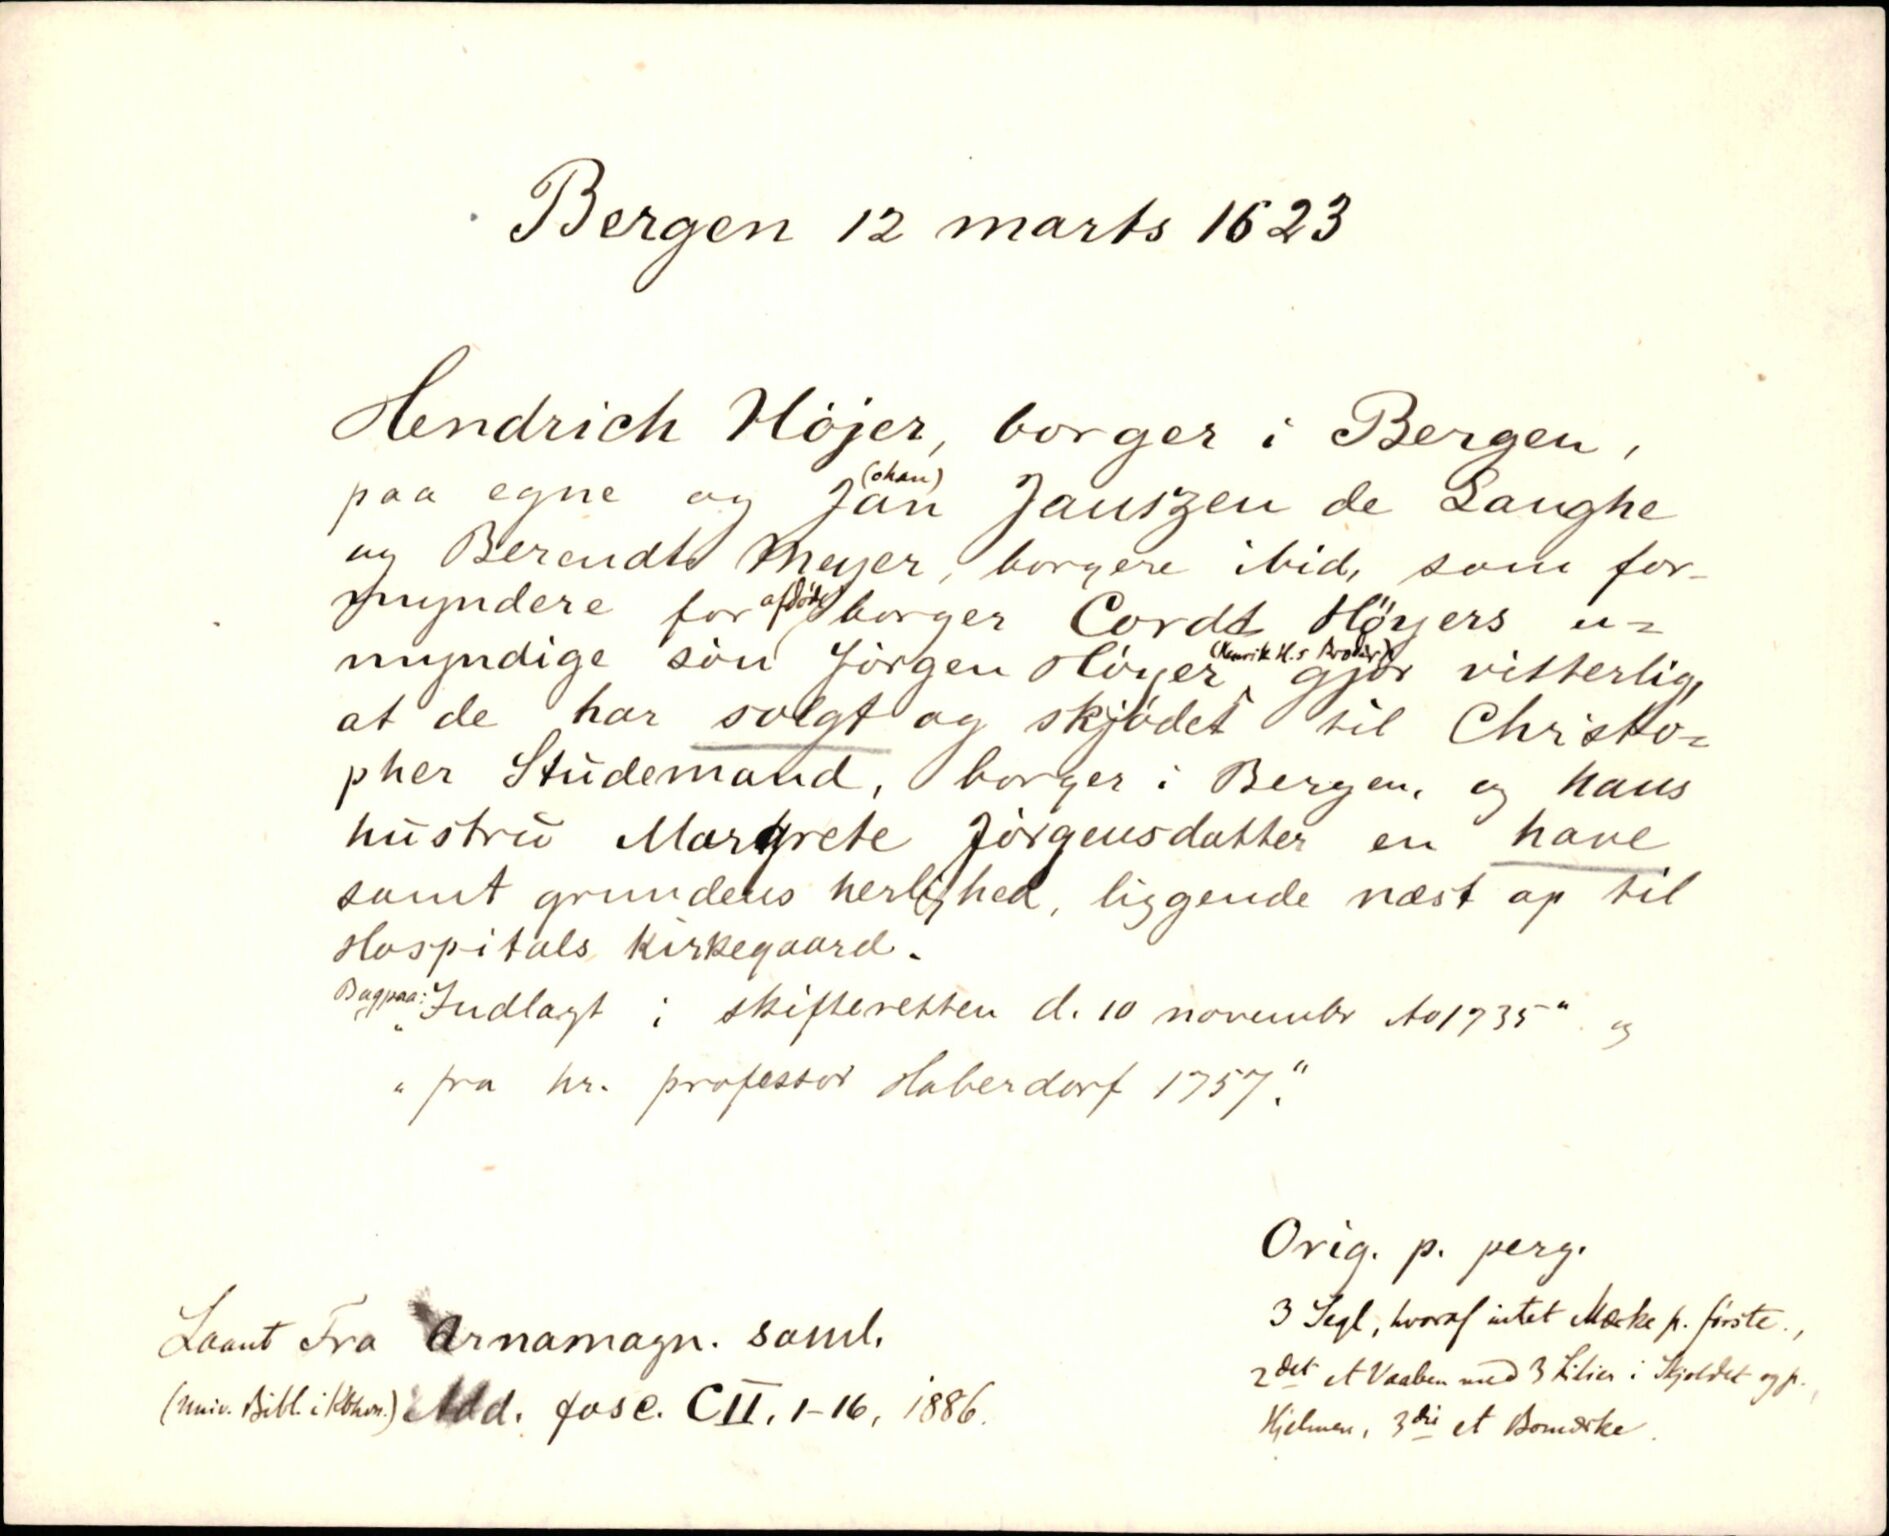 Bergen 12 marts 1623
Hendrich Höjer, borger i Bergen,
paa egne og Jan (ohan) Janszen de Langhe
og Berendt Meyer, borgere ibid, som for-
myndere for afdöde borger Cordt Höyers u=
myndige sön Jörgen Höyer (Henrik H.s Broder) gjör vitterlig,
at de har solgt og skjödet til Christo=
pher Stūdemand, borger i Bergen, og hans
hūstrū Margrete Jörgensdatter en have
samt grundens herlighed, liggende næst op til
Hospitals kirkegaard.
Bagpaa: "Indlagt i skifteretten d. 10 novembr Ao 1735" og
"fra hr. professor Haberdorf 1757."
Orig. p. perg.
3 Segl, hvoraf intet Mærke p. förste.,
2det et Vaaben med 3 Lilier i Skjoldet og p.
Hjelmen, 3die et Bomærke.
Laant Fra Arnamagn. saml.
(Univ. Bibl. i Kbhvn.) Add. fasc. CII, 1-16, 1886.